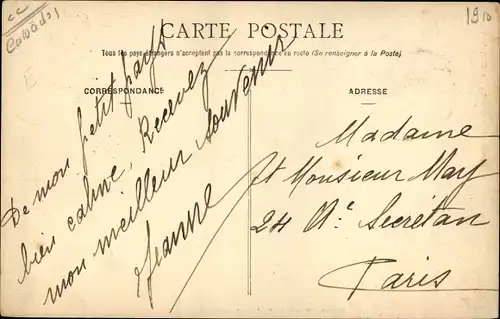 cc
Calvados
1910
CARTE POSTALE
Tous les pays étrangers n'acceptent pas la correspondance au recto (Se renseigner à la Poste)
CORRESPONDANCE
ADRESSE
De mon petit pays
bien calme, Recevez
mon meilleur souvenir
Jeanne
Madame
Et Monsieur May
24 Ae Secrétan
Paris